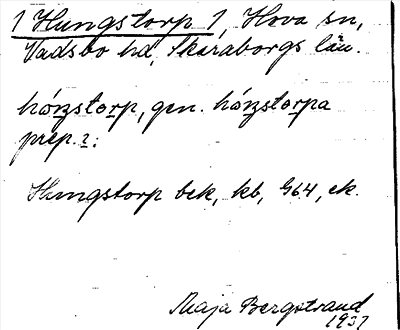 1 Hungstorp 1, Hova sn,
Vadsbo hd, Skaraborgs län.
hóŋstorp, gen. hóŋstorpa
prep. ɪ:
Hungstorp bek, kb, G64, ek.
Maja Bergstrand
1937